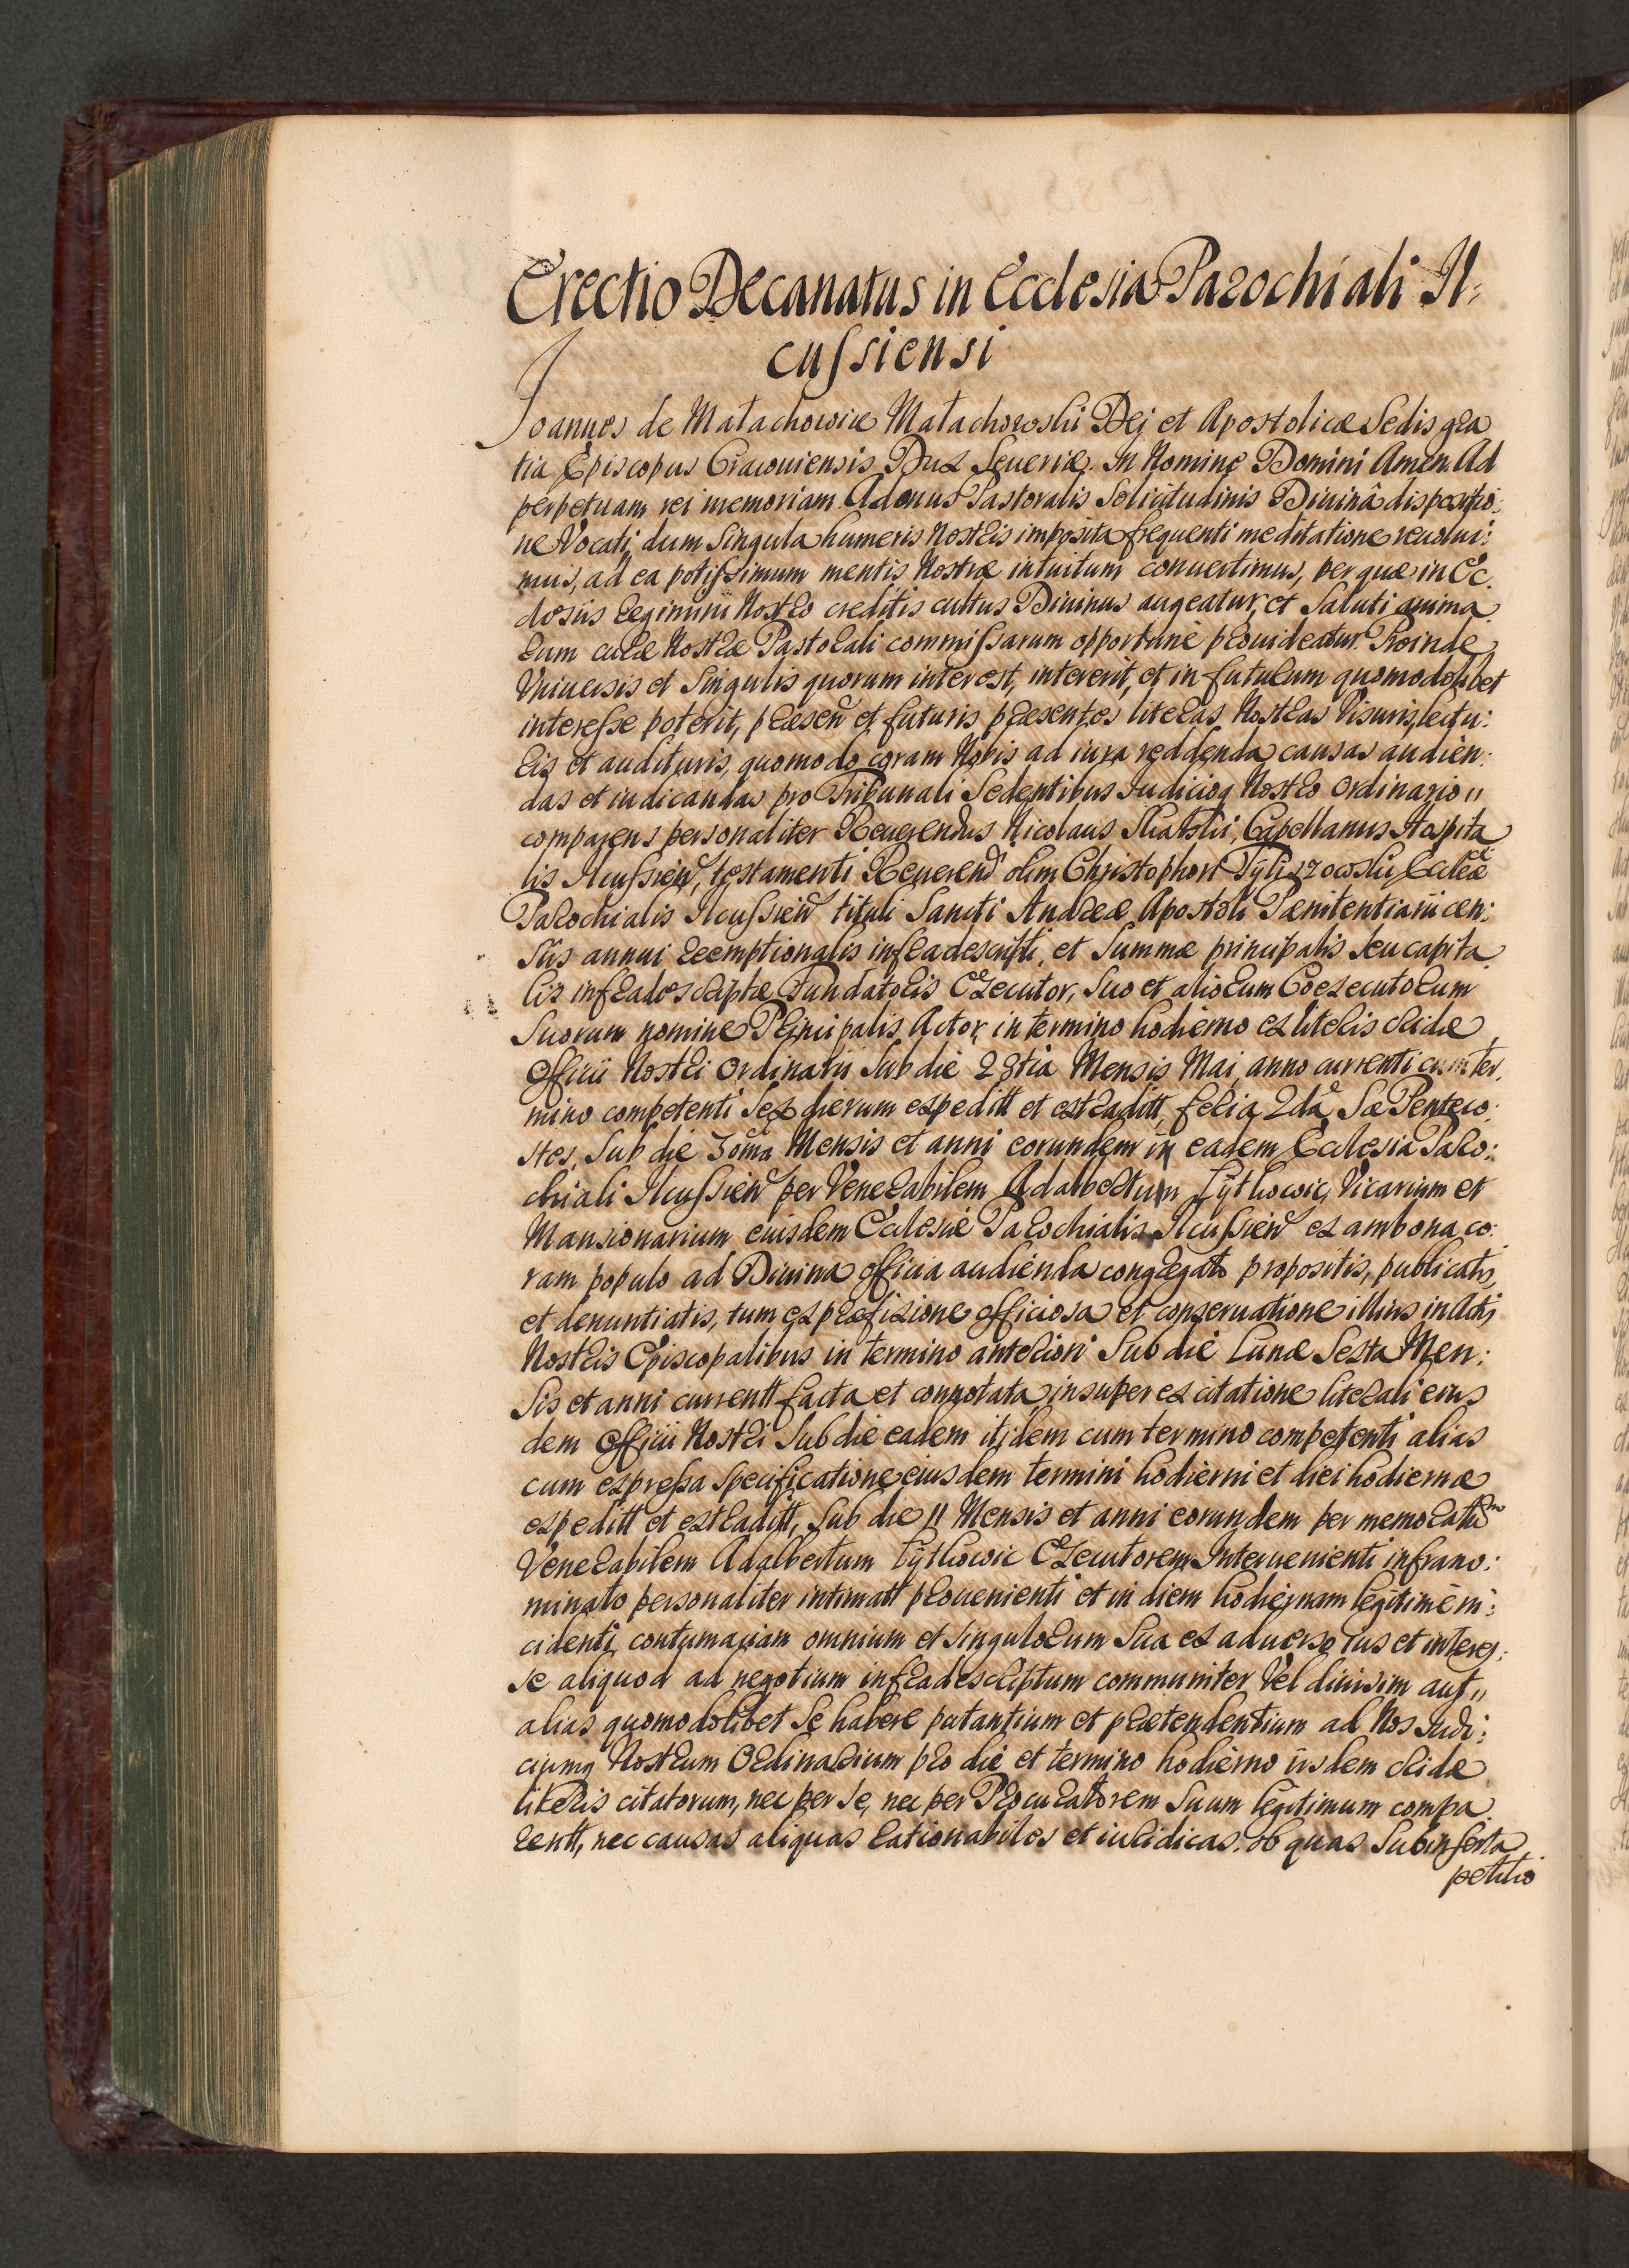 Erectio Decanatus in Ecclesia Parochiali Il:
cussiensi
Joannes de Małachowice Małachowski Dej et Apostolicæ Sedis gra
tia Episcopus Cracouiensis Dux Seueriæ. In Nomine Domini Amen. Ad
perpetuam rei memoriam. Ad onus Pastoralis Solicitudinis Diuinâ dispositio:
ne Vocati, dum Singula humeris Nostris imposita frequenti meditatione reuolui:
mus, ad ea potissimum mentis Nostræ intuitum conuertimus, per quæ in Ec:
clesiis regimini Nostro creditis cultus Diuinus augeatur, et Saluti anima:
rum curæ Nostræ Pastorali commissarum opportunè prouideatur. Proinde
Vniuersis et Singulis quorum interest, intererit, et in futurum quomodolibet
interesse poterit, præsen et futuris præsentes literas Nostras Visuris, lectu:
ris et audituris, quomodo coram Nobis ad iura reddenda causas audien:
das et iudicandas pro Tribunali Sedentibus Iudicioq Nostro Ordinario
comparens personaliter Reuerendus Nicolaus Skalski, Capellanus Hospita
lis Ilcussien, testamenti Reuerend olim Christophori Eccliæ
Parochialis Ilcussien tituli Sancti Andreæ Apostoli Pænitentiarii cen:
sûs annui reemptionalis infradescripti, et Summæ principalis seu capita
lis infradescriptæ Fundatoris Executor, Suo et aliorum Coexecutorum
Suorum nomine Principalis Actor, in termino hodierno ex literis cridæ
Officii Nostri Ordinarii Sub die 28tia Mensis Mai, anno currenti cum ter:
mino competenti Sex dierum expeditt et extraditt, feria 2da Sæ Penteco:
stes, Sub die 30ma Mensis et anni eorundem in eadem Ecclesia Paro:
chiali Ilcussien per Venerabilem Adalbertum Tytkowic, Vicarium et
Mansionarium eiusdem Ecclesiæ Parochialis Ilcussien ex ambona co:
ram populo ad Diuina officia audienda congregato propositis, publicatis,
et denuntiatis, tum ex præfixione officiosa et conseruatione illius in Actis
Nostris Episcopalibus in termino anteriori Sub die Lunæ Sexta Men:
sis et anni currentt facta et connotata, insuper ex citatione literali eius
dem Officii Nostri Sub die eadem itidem cum termino competenti alias
cum expressa specificatione eiusdem termini hodierni et diei hodiernæ
expeditt et extraditt, Sub die 11 Mensis et anni eorundem per memoratũ
Venerabilem Adalbertum Tytkowic Executorem Interuenienti infrano:
minato personaliter intimatt prouenienti et in diem hodiernam legitimè in:
cidenti, contumaciam omnium et Singulorum Sua ex aduerso Ius et interes:
se aliquod ad negotium infradescriptum communiter Vel diuisim aut
alias quomodolibet Se habere putantium et prætendentium ad Nos Iudi:
ciumq Nostrum Ordinarium pro die et termino hodierno iisdem cridæ
literis citatorum, nec per se, nec per Procuratorem Suum legitimum compa:
rentt, nec causas aliquas rationabiles et iuridicas, ob quas Subinserta
petitio